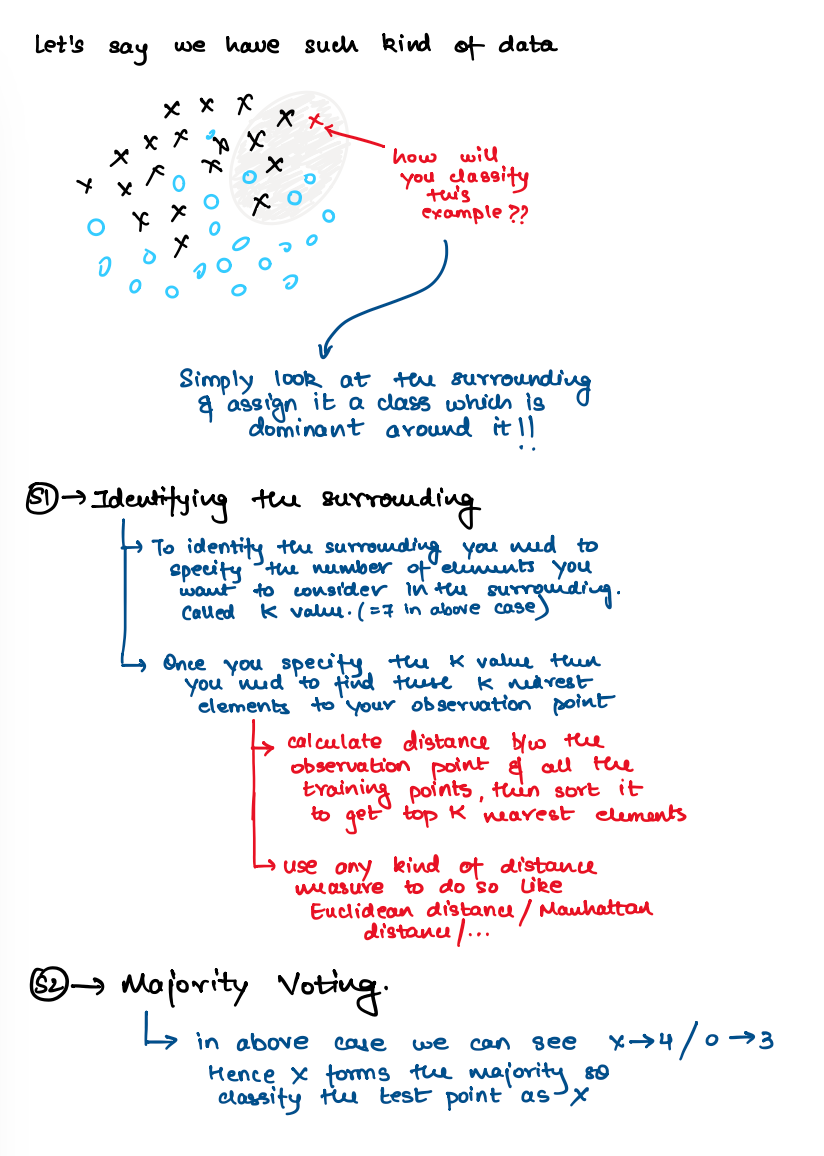 Let's say we have such kind of data
how will
you classify
this
example ??
Simply look at the surrounding
& assign it a class which is
dominant around it!!
S1 → Identifying the surrounding
→ To identify the surrounding you need to
specify the number of elements you
want to consider in the surrounding.
called K value. (=7 in above case)
→ Once you specify the K value then
you need to find these K nearest
elements to your observation point
→ calculate distance b/w the
observation point & all the
training points, then sort it
to get top K nearest elements
→ use any kind of distance
measure to do so like
Euclidean distance / Manhattan
distance / ...
S2 → Majority Voting.
→ in above case we can see x → 4 / o → 3
Hence x forms the majority so
classify the test point as - x